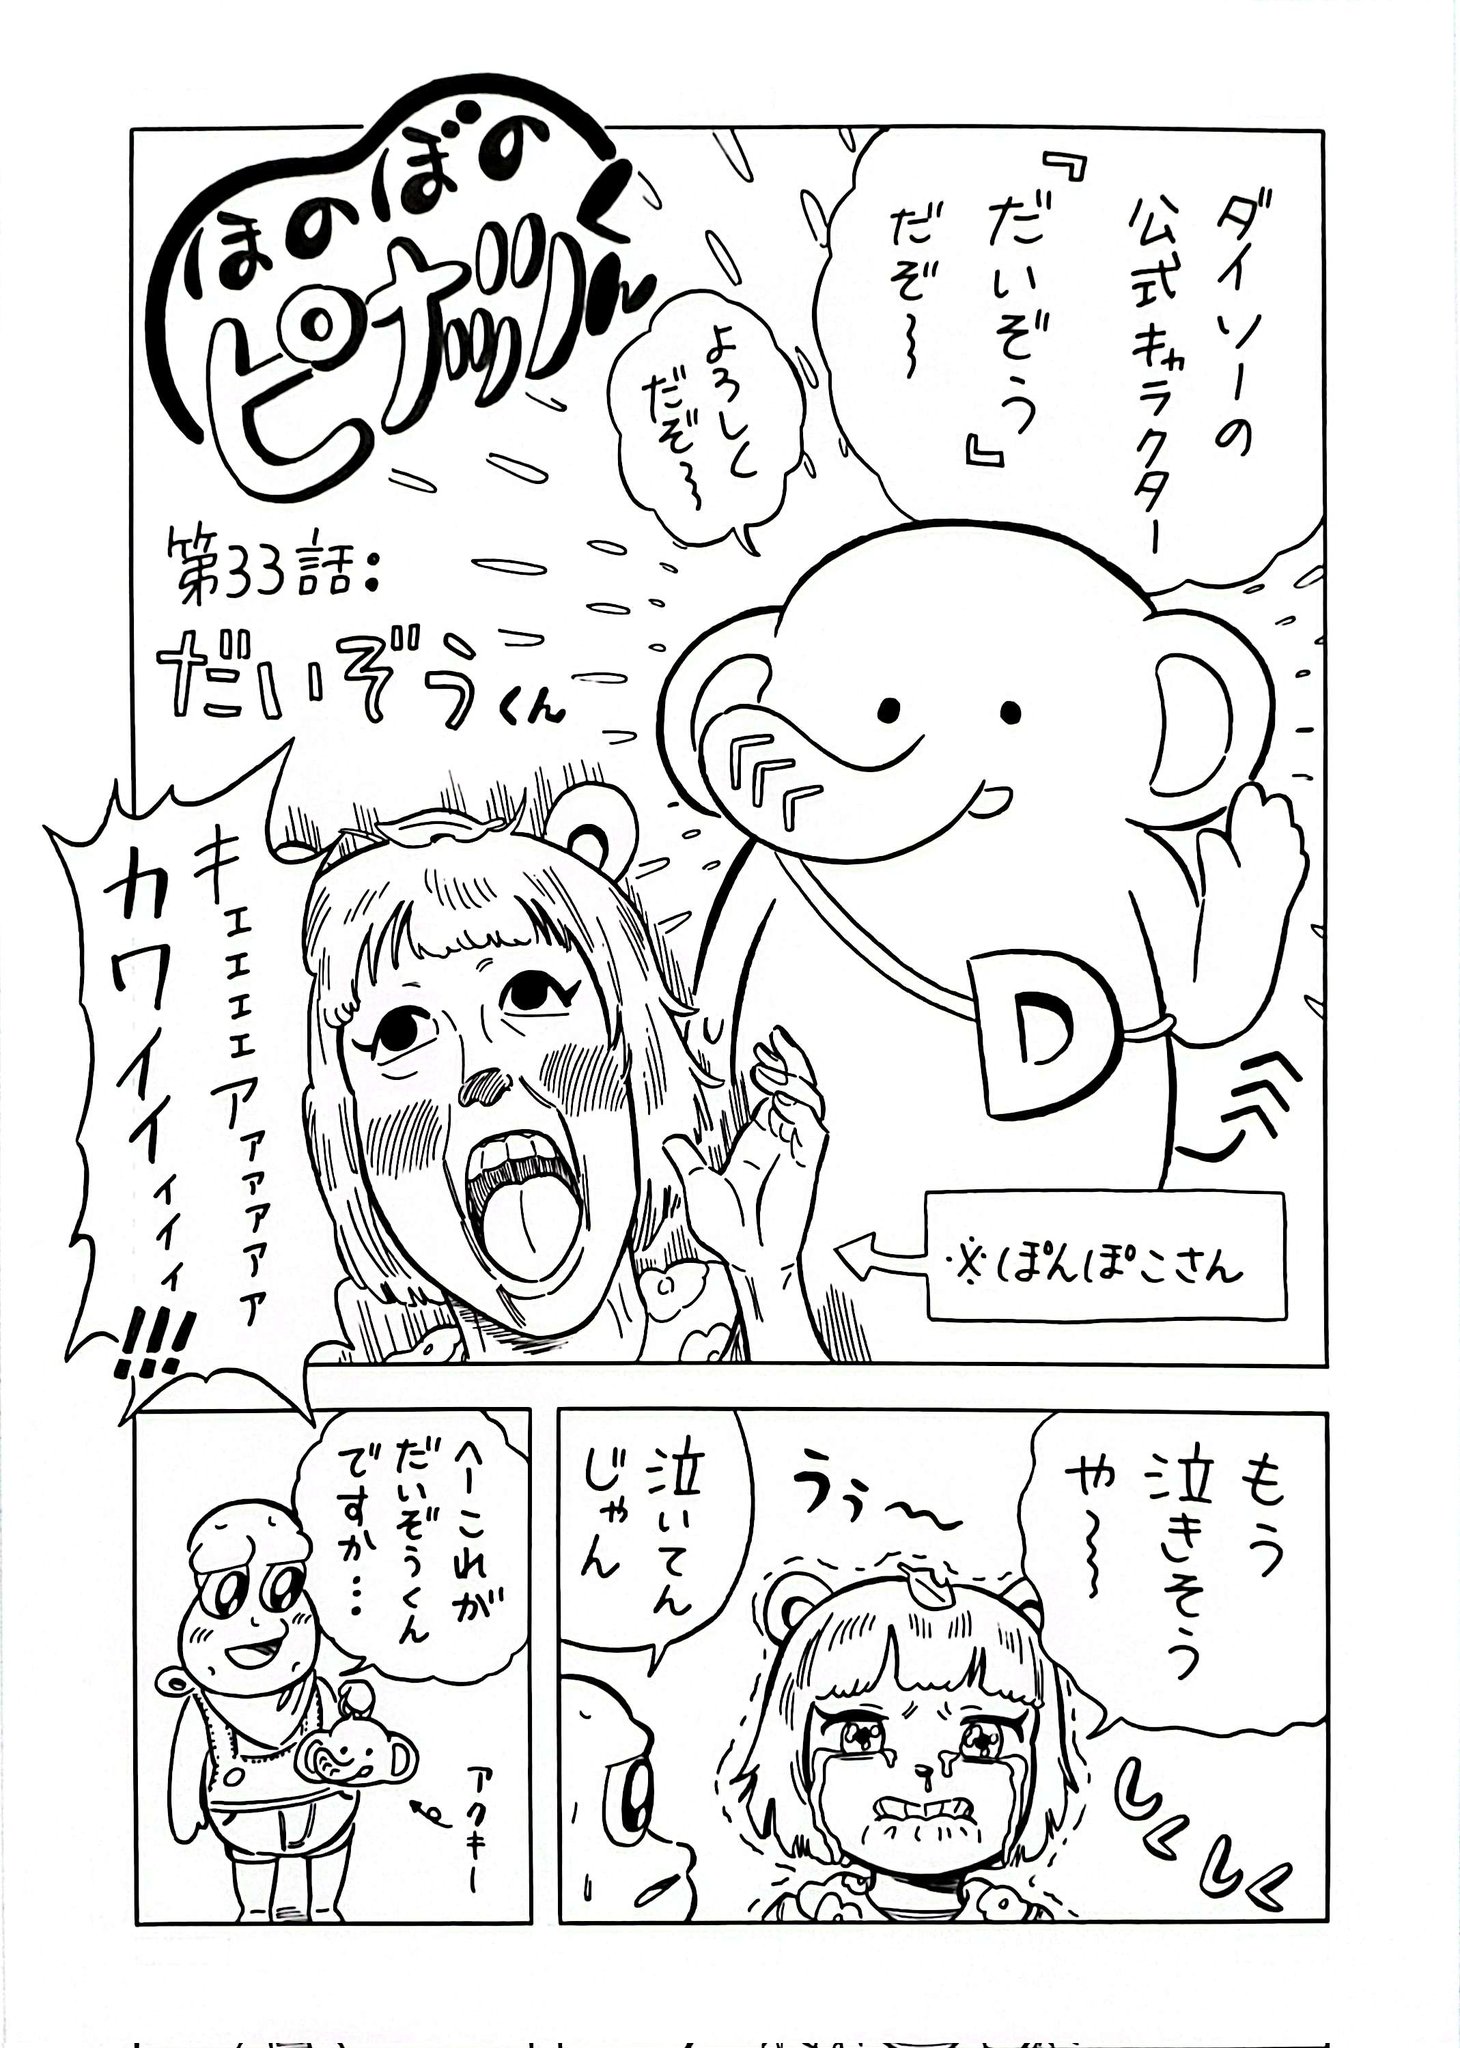 ほのぼの
ピーナッツくん
第33話:
だいぞうくん
ダイソーの
公式キャラクター
『だいぞう』
だぞ〜
よろしく
だぞ〜
キェェェェアァァァァァ
カワイイイィィィ!!!
※ぽんぽこさん
もう
泣きそう
や〜
うぅ〜
しくしく
泣いてん
じゃん
へーこれが
だいぞうくん
ですか…
アクキー